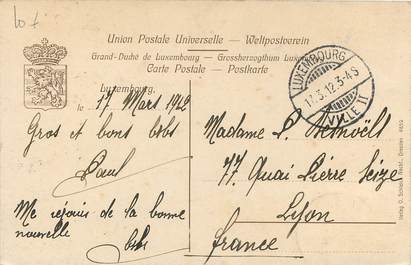 10 f
Union Postale Universelle – Weltpostverein
Grand-Duché de Luxembourg – Grossherzogthum Luxemburg
Carte Postale – Postkarte
Luxembourg,
17 Mars 1912
Gros et bons bsbs
Paul
Me réjouis de la bonne
nouvelle
bsbs
LUXEMBOURG
17.3.12.3-4S
VILLE
Madame L.
77. Quai Pierre Seize
Lyon
France